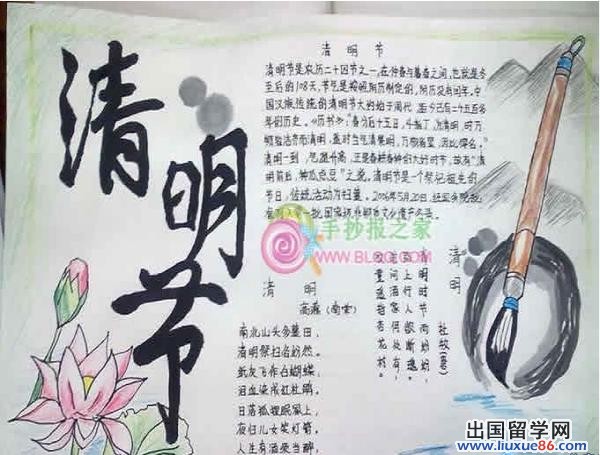 清明节
清明节
清明节是农历二十四节之一,在仲春与暮春之间,也就是冬
至后的108天,节气是按照阳历制定的,阴历没有闰年。中
国汉族传统的清明节大约始于周代,至今已有二千五百多
年的历史。《历书》:"春分后十五日,斗指丁,为清明,时万
物皆洁齐而清明,盖时当气清景明,万物皆显,因此得名。"
清明一到,气温升高,正是春耕春种的大好时节,故有"清
明前后,种瓜点豆"之说。清明节是一个祭祀祖先的
节日,传统活动为扫墓。2006年5月20日,经国务院批
准列入第一批国家级非物质文化遗产名录。
手抄报之家
清明
高翥(南宋)
南北山头多墓田,
清明祭扫各纷然。
纸灰飞作白蝴蝶,
泪血染成红杜鹃。
日落狐狸眠冢上,
夜归儿女笑灯前。
人生有酒须当醉,
清明
杜牧(唐)
清明时节雨纷纷,
路上行人欲断魂。
借问酒家何处有,
牧童遥指杏花村。
出国留学网
www.liuxue86.com